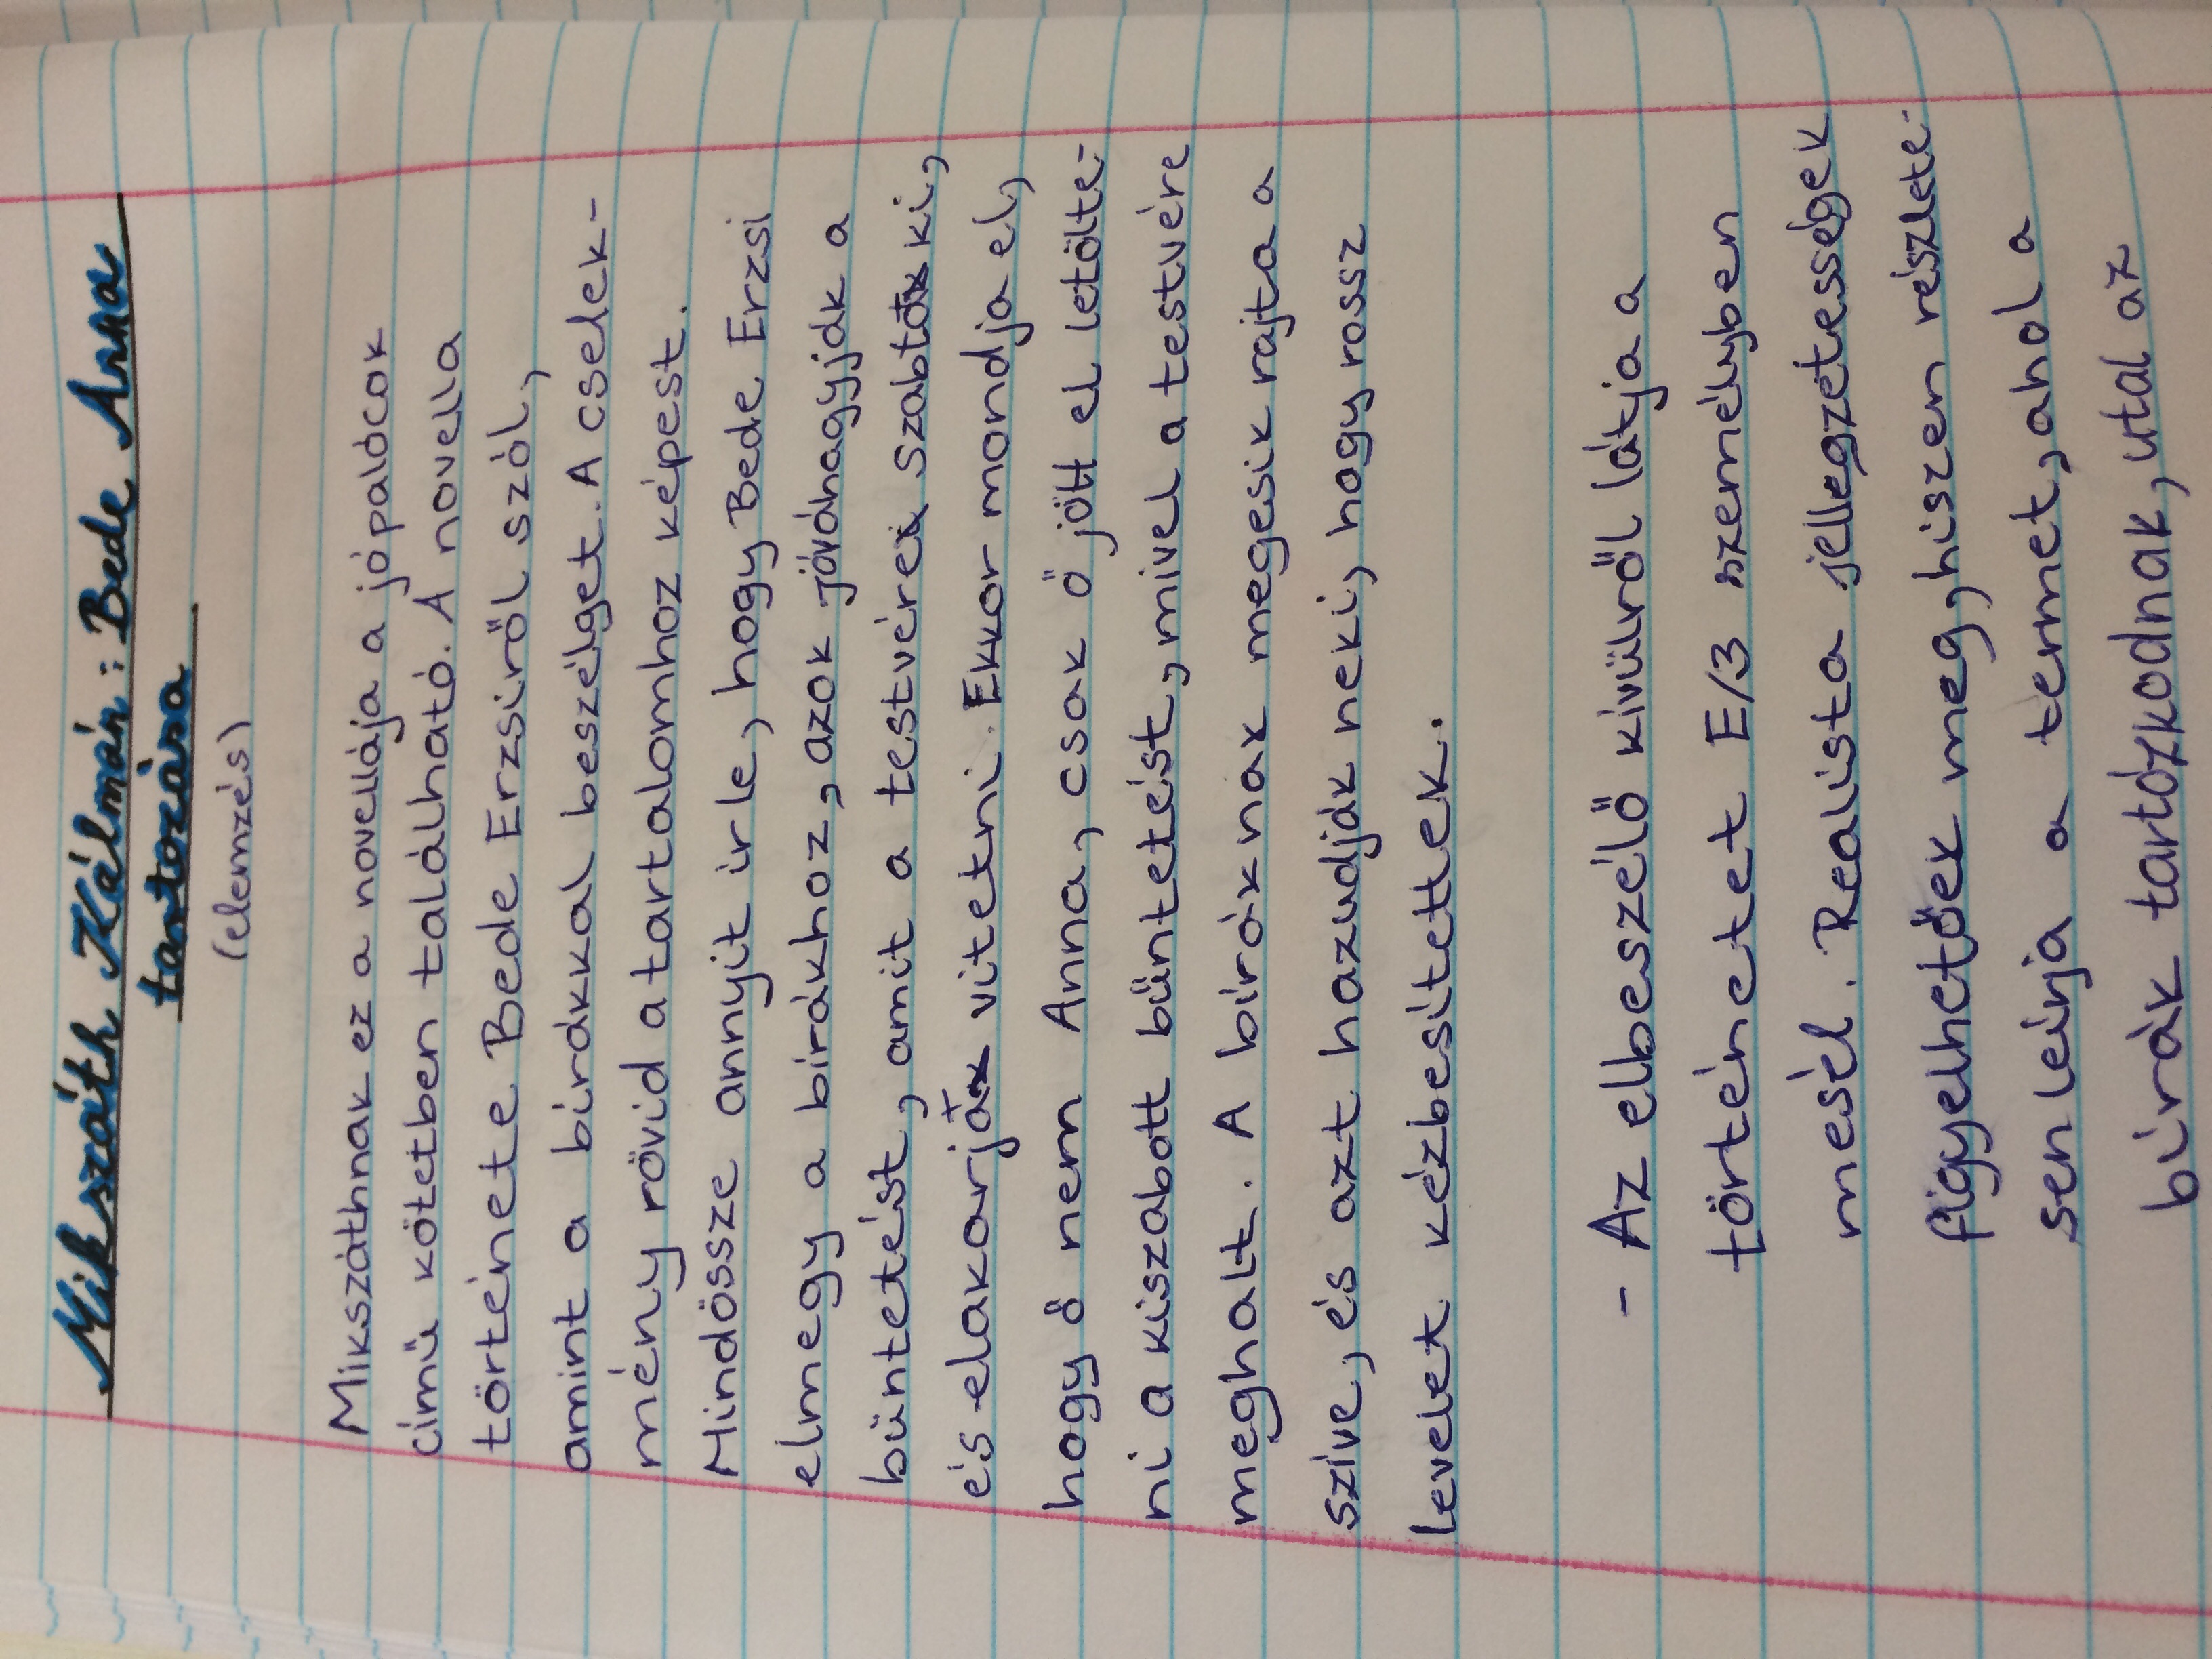 Mikszáth Kálmán: Bede Anna
tartozása
(elemzés)
Mikszáthnak ez a novellája a jó palócok
című kötetben található. A novella
története Bede Erzsiről szól,
amint a birákkal beszélget. A cselek-
mény rövid a tartalomhoz képest.
Mindössze annyit ír le, hogy Bede Erzsi
elmegy a birákhoz, azok jóváhagyják a
büntetést, amit a testvére szabtak ki,
és elakarják vitetni. Ekkor mondja el,
hogy ő nem Anna, csak ő jött el letölte-
ni a kiszabott büntetést, mivel a testvére
meghalt. A biráknak megesik rajta a
szíve, és azt hazudják neki, hogy rossz
levelet kézbesítettek.
- Az elbeszélő kívülről látja a
történetet E/3 személyben
mesél. Realista jellegzetességek
figyelhetőek meg, hiszen részlete-
sen leírja a termet, ahol a
bírák tartózkodnak, utal az